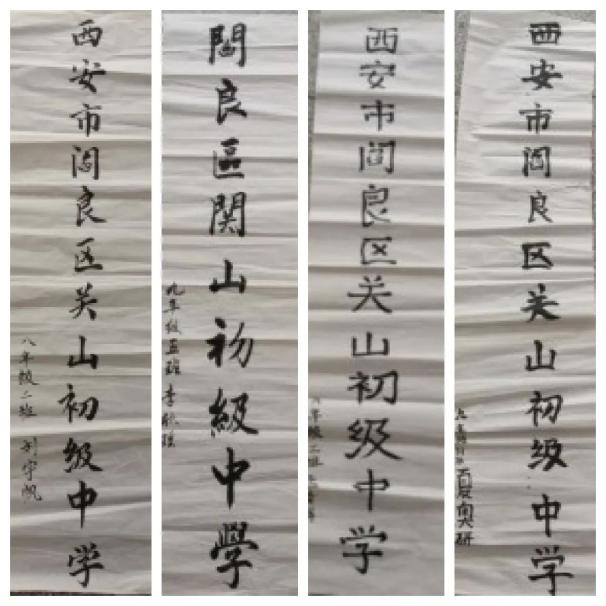 西安市阎良区关山初级中学
八年级二班 刘宇帆
閻良區関山初級中學
九年级五班 李
西安市阎良区关山初级中学
年级二班
西安市阎良区关山初级中学
夏奥研